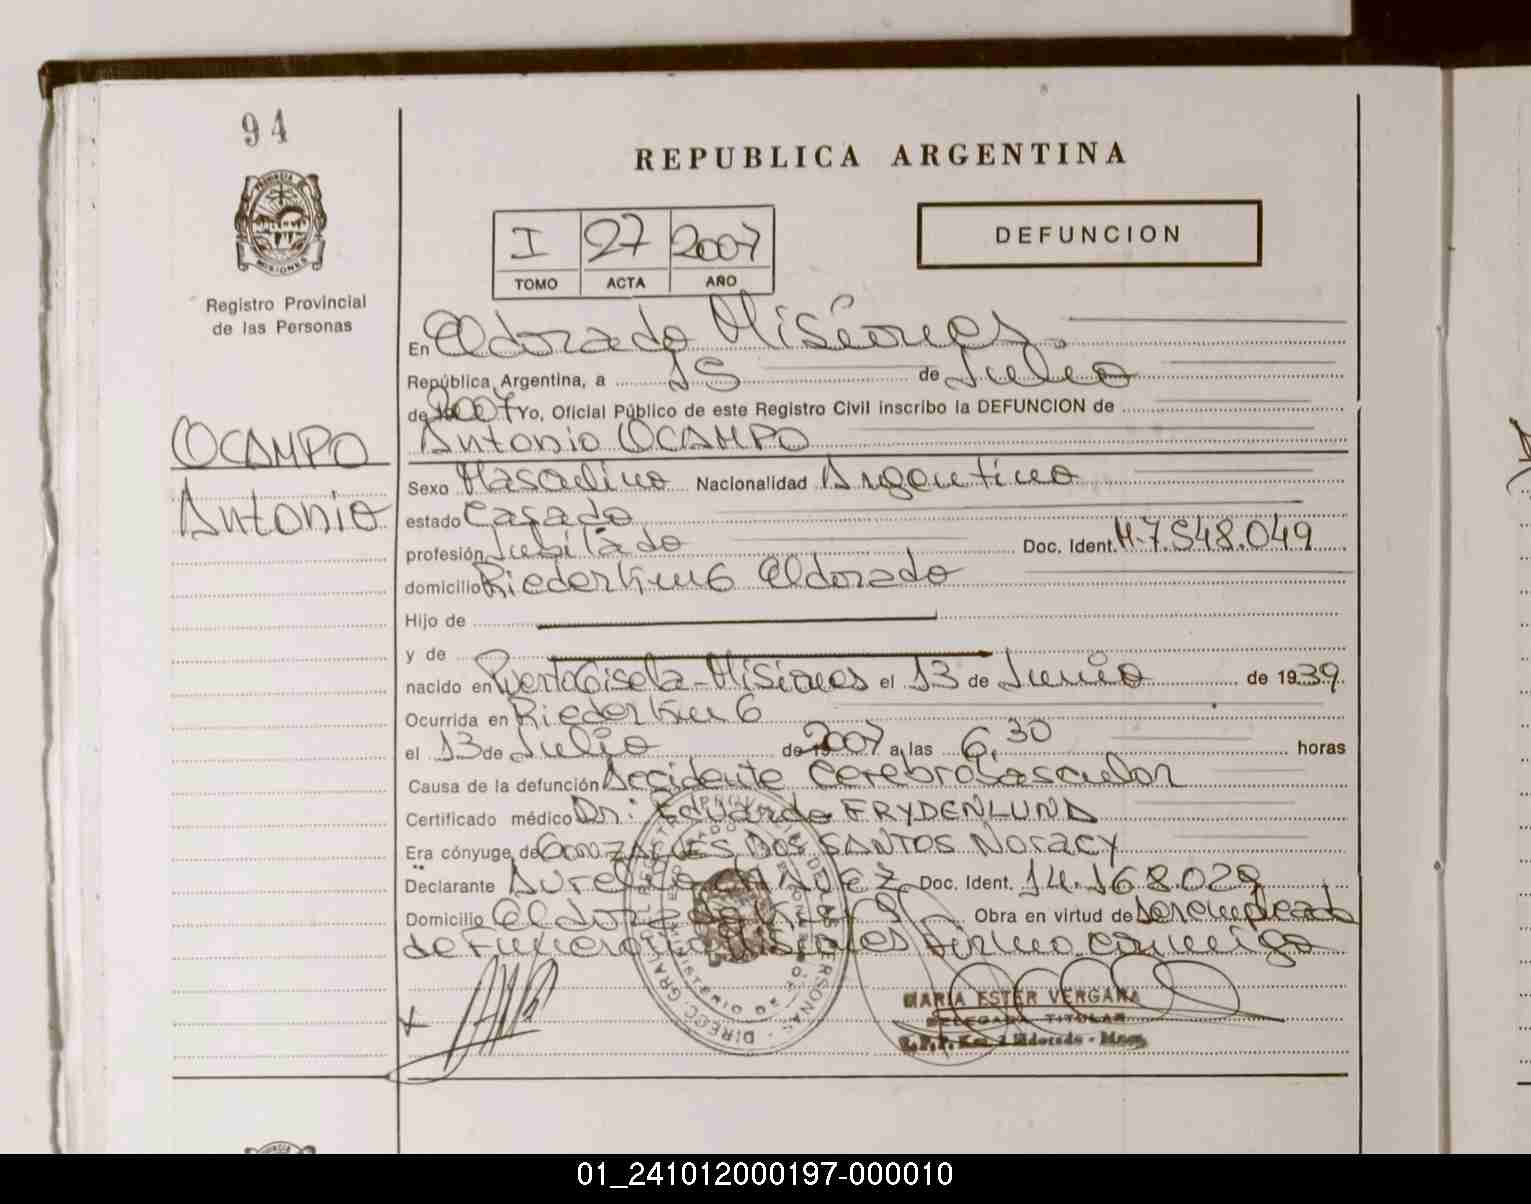 94
REPUBLICA ARGENTINA
PROVINCIA DE
MISIONES
Registro Provincial
de las Personas
I 27 2007
TOMO ACTA AÑO
DEFUNCION
En Eldorado Misiones.
República Argentina, a 15 de Julio
de 2007 Yo, Oficial Público de este Registro Civil inscribo la DEFUNCION de
OCAMPO
Antonio
Antonio OCAMPO
Sexo Masculino Nacionalidad Argentino
estado Casado
profesión Jubilado Doc. Ident. M.7548.049
domicilio Rieder Km 6 Eldorado
Hijo de
y de
nacido en Puerto Gisela-Misiones el 13 de Junio de 1939.
Ocurrida en Rieder Km 6
el 13 de Julio de 2007 a las 6,30 horas
Causa de la defunción Accidente Cerebrovascular
Certificado médico Dr: Eduardo FRYDENLUND
Era cónyuge de GONZALVES DOS SANTOS Noracy
Declarante Aurelio Doc. Ident. 14.168.029
Domicilio Eldorado Km 9 Obra en virtud de ser empleado
de Funeraria Misiones firma conmigo
MARIA ESTER VERGARA
DELEGADA TITULAR
01_241012000197-000010